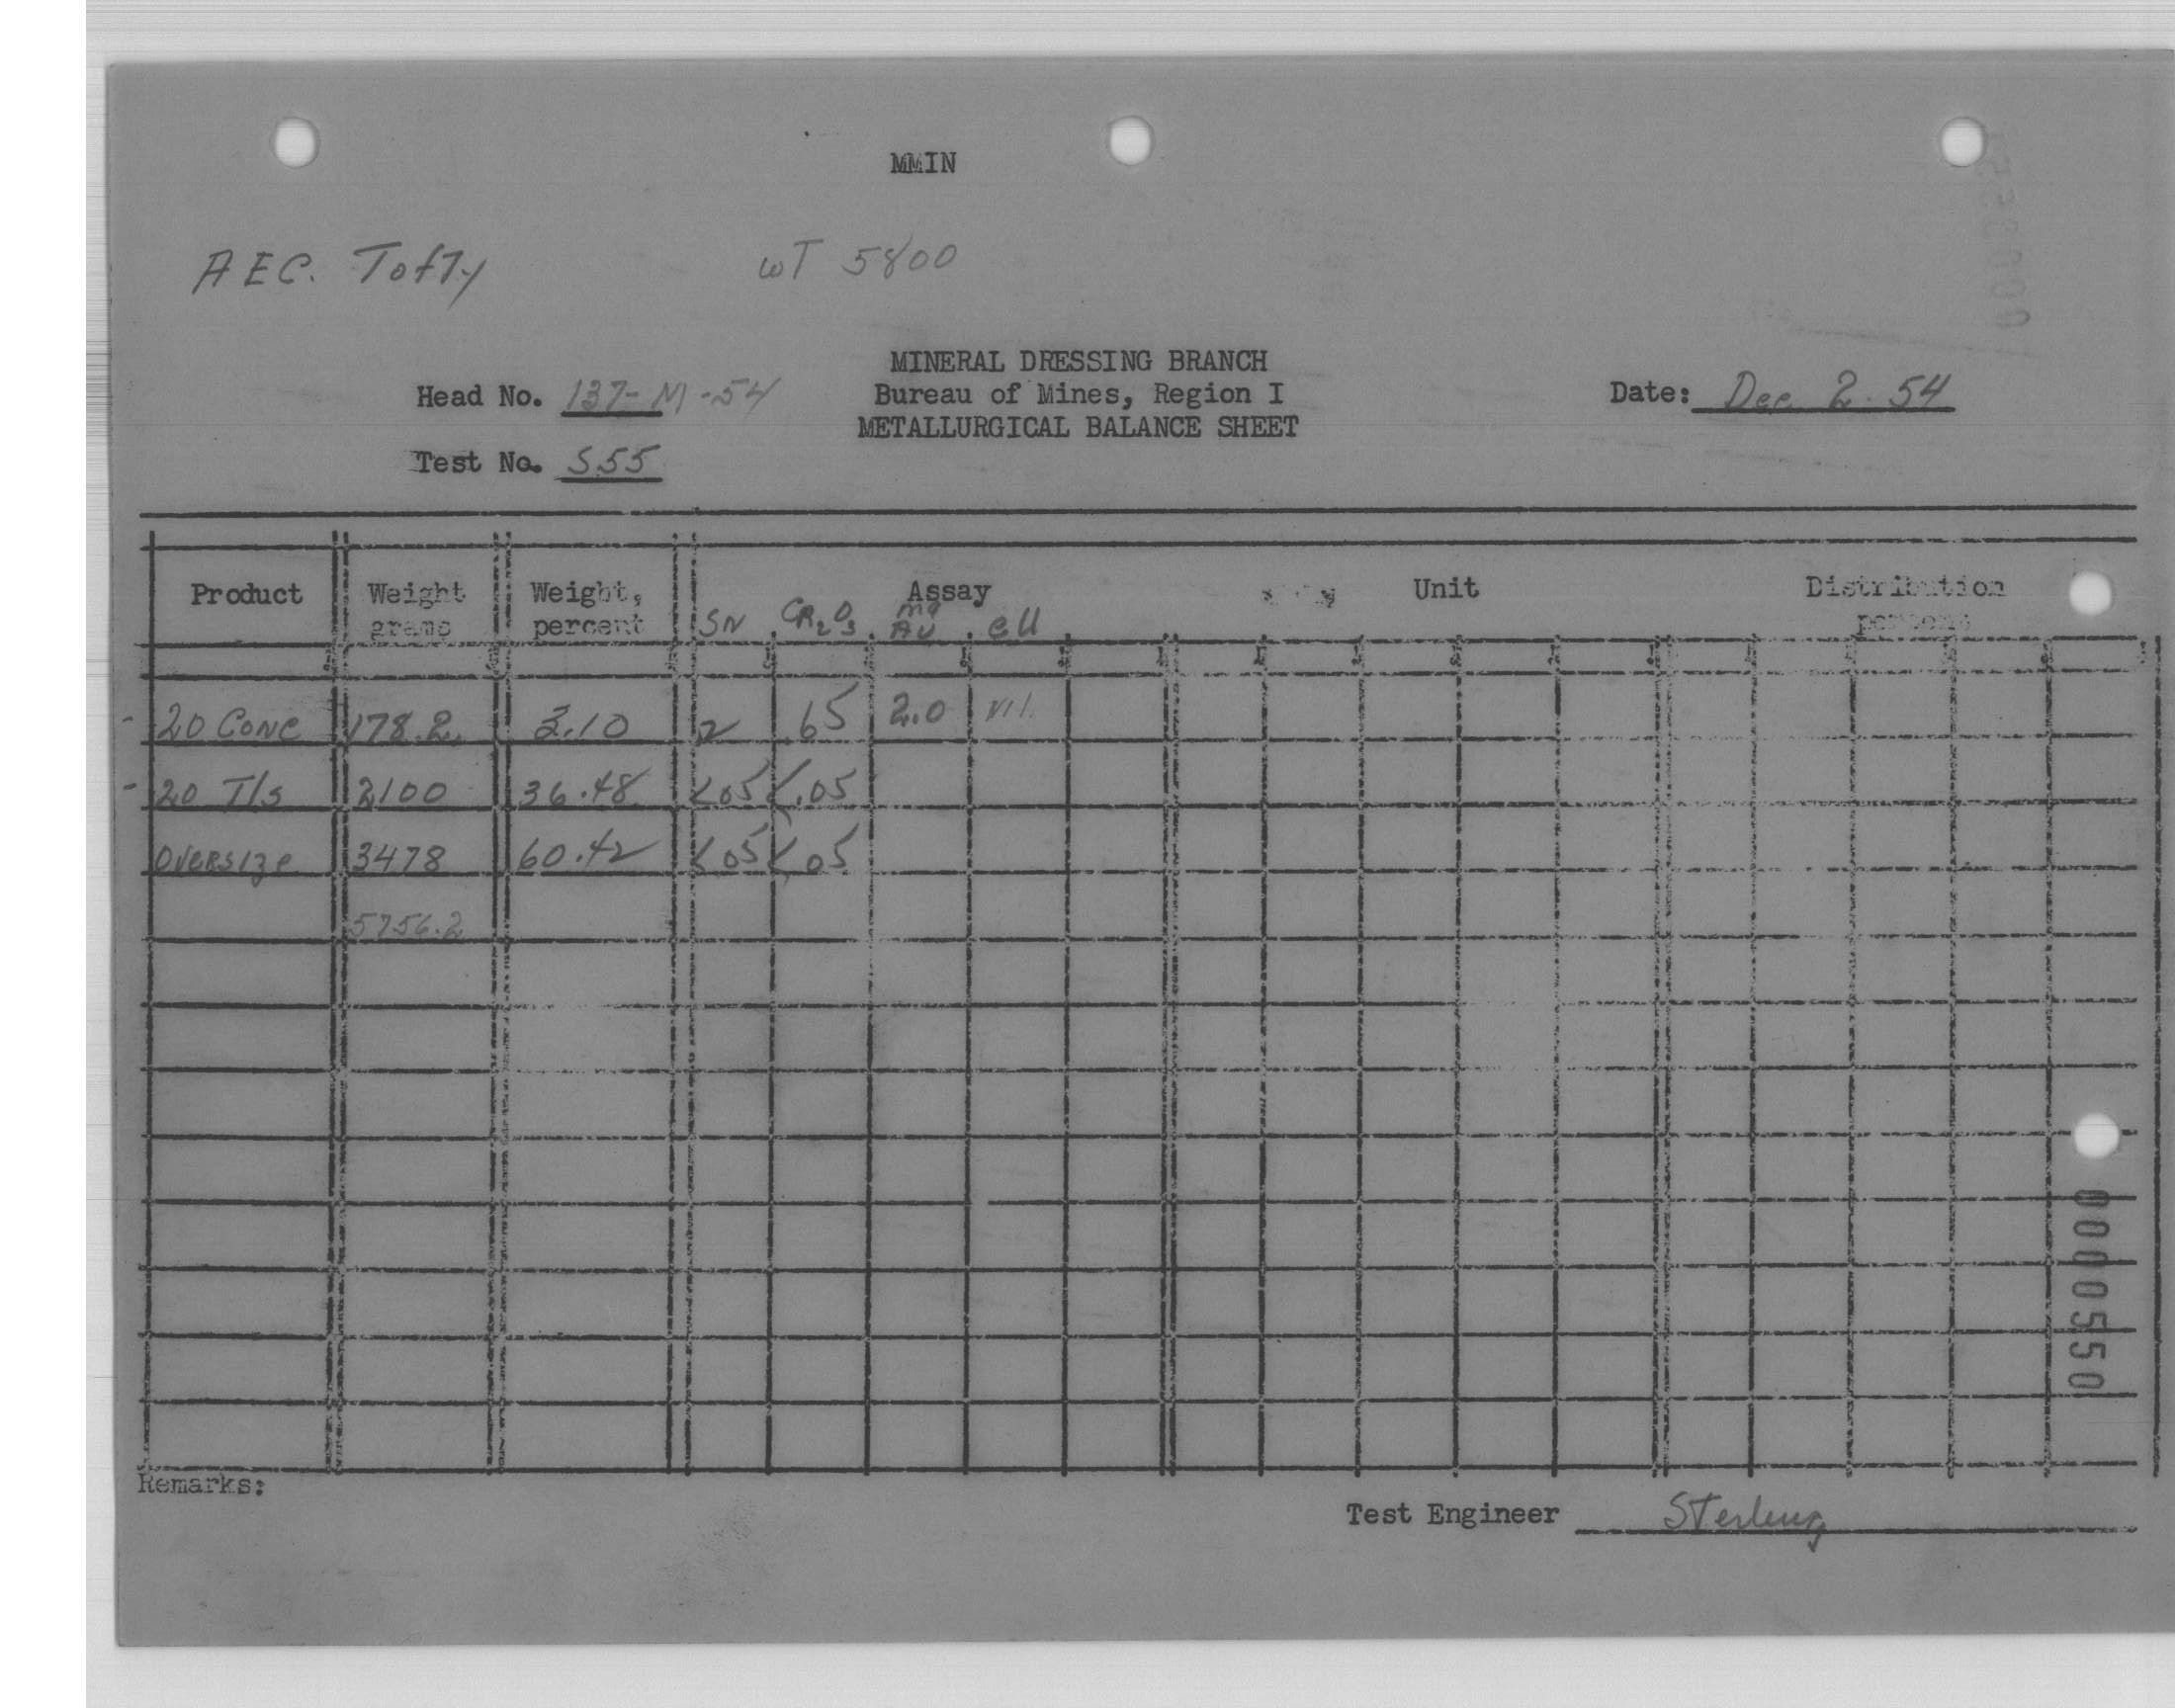 MMIN
AEC. Tofty wT 5800
MINERAL DRESSING BRANCH
Head No. 137-M-54 Bureau of Mines, Region I Date: Dec. 2. 54
METALLURGICAL BALANCE SHEET
Test No. S55
Product Weight grams Weight, percent Assay Unit Distribution percent
SN CR2O3 mg AU eU
-20 CONC 178.2 3.10 .65 2.0 Nil
-20 T/s 2100 36.48 <.05 <.05
OVERSIZE 3478 60.42 <.05 <.05
5756.2
0000550
Remarks:
Test Engineer Sterling